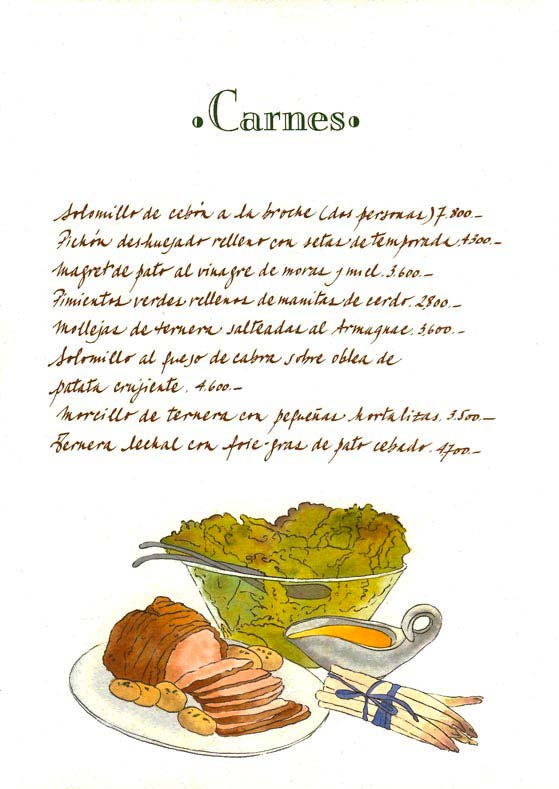 •Carnes•
Solomillo de cebón a la broche (dos personas) 7.800.-
Pichón deshuejado relleno con setas de temporada. 4300.-
Magret de pato al vinagre de moras y miel. 3.600.-
Pimientos verdes rellenos de manitas de cerdo. 2,800.-
Mollejas de ternera salteadas al Armagnac. 3,600.-
Solomillo al queso de cabra sobre oblea de
patata crujiente. 4.600.-
Morcillo de ternera con pequeñas hortalizas. 3.500.-
Ternera lechal con foie-gras de pato cebado. 4700.-